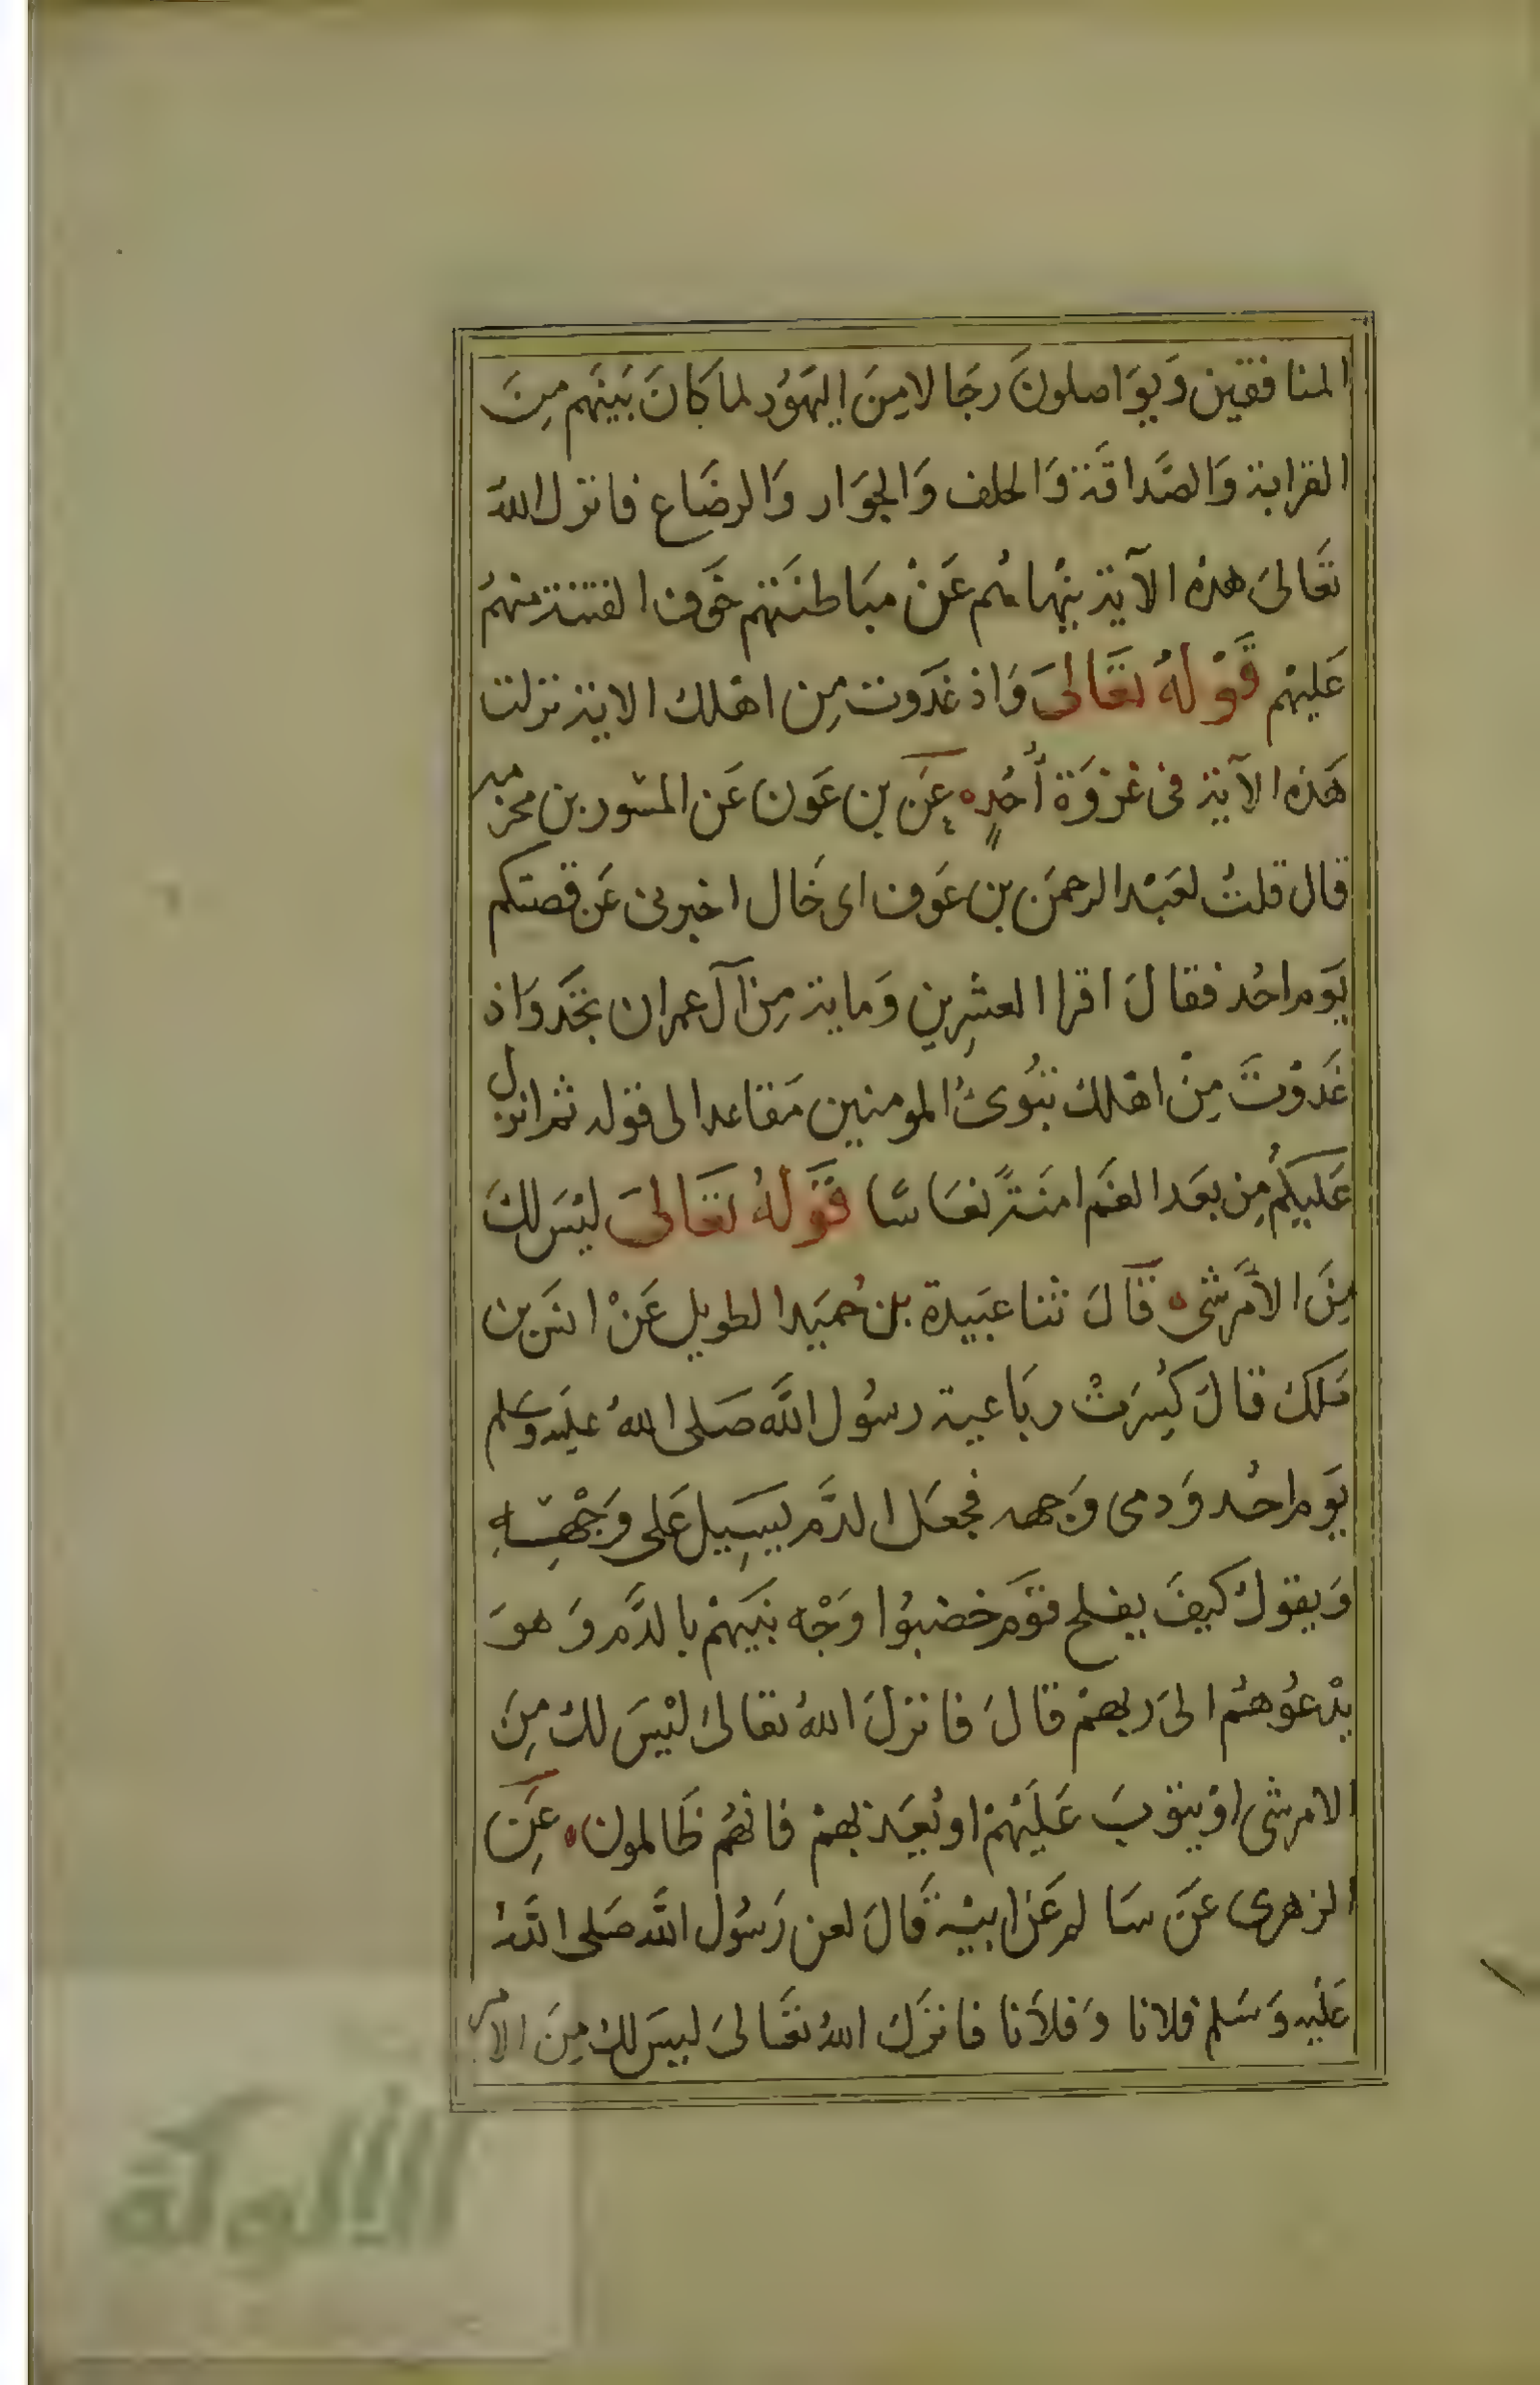 المنافقين وَيوَاصلونَ رجَالا مِنَ اليَهوُد لما كانَ بَينَهم مِنَ
القرابة وَالصَّداقَة وَالحلف وَالجوَار وَالرضَاع فانزل اللهُ
تعَالىَ هذه الآية ينهاهُم عَنْ مبَاطنَتهم خَوف الفتنة منهمُ
عَليْهم قَوْلهُ تعَالىَ وَاذ غدَوت مِن اهْلك الاية نزلت
هَذه الآية فى غزوَة أُحُدٍ عَن بن عَون عَن المسَور بن مخرمه
قال قلتُ لعَبْد الرحمَن بن عَوف اى خَال اخبرنى عَن قصتكم
يَوم احُد فقالَ اقرا العشرِين وَماية مِن آل عمران تجَد وَاذ
غدَوْتَ مِنْ اهْلك تبُوئُ المومنين مَقاعد الى قوله ثم انزل
عَليكمُ مِن بعَد الغَم امنَةً نعَاسًا قَوْلهُ تعَالىَ ليْسَ لكَ
مِنَ الأمَر شى قَالَ ثنا عبَيدة بن حُميَد الطويل عَنْ انسَ بن
مَلك قالَ كُسِرَتْ ربَاعية رسُول اللَّه صَلى اللهُ عليَه وَسَلم
يَوم احُد وَدمى وَجهه فجعَل الدَّم يسِيل عَلى وَجْهِهِ
وَيقولُ كيفَ يفلح قوَم خضبُوا وَجْه نبَيهْم بالدَّم وَهوَ
يدْعُوهمُ الىَ ربهمْ قالَ فانزلَ اللهُ تعالىَ ليْسَ لكَ مِنَ
الامر شى اوْ يتوَبَ عَليَهْم اويُعَذبهمْ فانهُم ظَالمون عَن
الزهرى عَنَ سَالم عَن ابيْه قَالَ لعن رَسُول اللَّه صَلى اللَّهُ
عَليْه وَسَلم فلانا وَفلاَنا فانزَل اللهُ تعَالىَ ليسَ لكَ مِنَ الامر
الألوكة